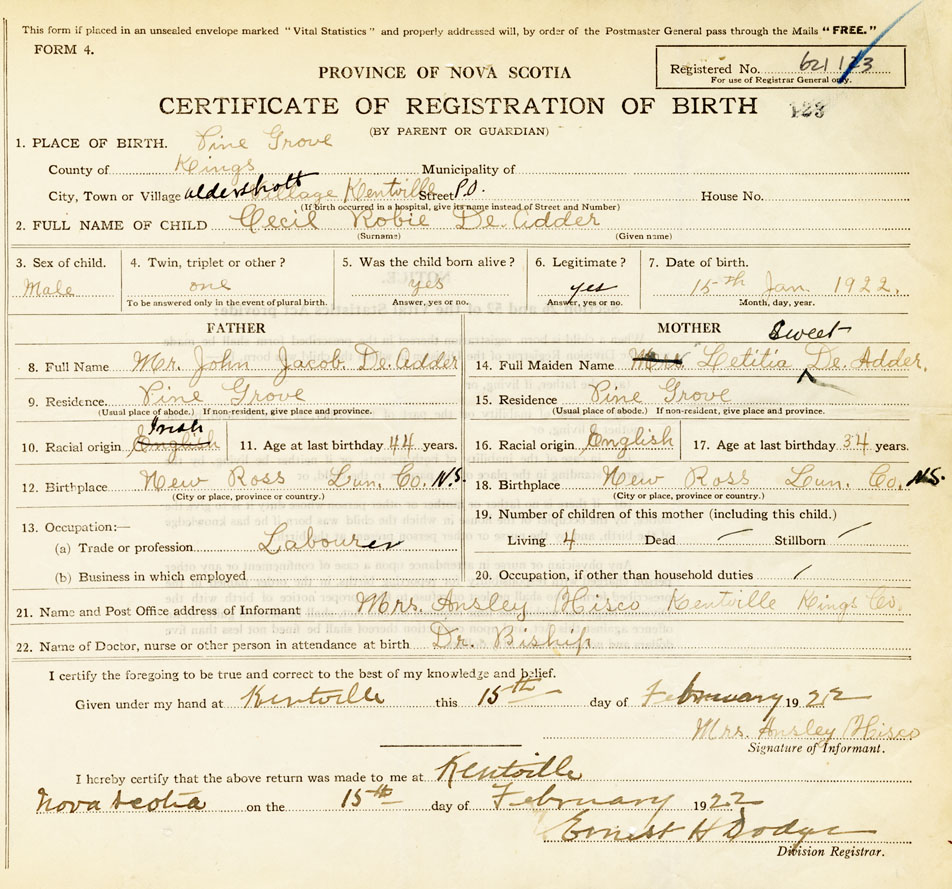 This form if placed in an unsealed envelope marked "Vital Statistics" and properly addressed will, by order of the Postmaster General pass through the Mails "FREE."
FORM 4.
Registered No. 621123
For use of Registrar General only.
PROVINCE OF NOVA SCOTIA
CERTIFICATE OF REGISTRATION OF BIRTH 123
(BY PARENT OR GUARDIAN)
1. PLACE OF BIRTH. Pine Grove
County of Kings Municipality of
City, Town or Village aldershott Village Kentville Street P.O. House No.
(If birth occurred in a hospital, give its name instead of Street and Number)
2. FULL NAME OF CHILD Cecil Robie De.Adder
(Surname) (Given name)
3. Sex of child. 4. Twin, triplet or other? 5. Was the child born alive? 6. Legitimate? 7. Date of birth.
Male one yes yes 15th Jan. 1922.
To be answered only in the event of plural birth. Answer, yes or no. Answer, yes or no. Month, day, year.
FATHER MOTHER
Sweet
8. Full Name Mr. John Jacob De.Adder 14. Full Maiden Name Mrs Letitia De.Adder.
9. Residence. Pine Grove 15. Residence Pine Grove
(Usual place of abode.) If non-resident, give place and province. (Usual place of abode.) If non-resident, give place and province.
Irish
10. Racial origin English 11. Age at last birthday 44 years. 16. Racial origin English 17. Age at last birthday 34 years.
12. Birthplace New Ross Lun. Co. N.S. 18. Birthplace New Ross Lun. Co. N.S.
(City or place, province or country.) (City or place, province or country.)
13. Occupation:— 19. Number of children of this mother (including this child.)
(a) Trade or profession Labourer Living 4 Dead — Stillborn /
(b) Business in which employed 20. Occupation, if other than household duties /
21. Name and Post Office address of Informant Mrs. Ansley Hisco Kentville Kings Co.
22. Name of Doctor, nurse or other person in attendance at birth Dr. Biship
I certify the foregoing to be true and correct to the best of my knowledge and belief.
Given under my hand at Kentville this 15th day of February 1922
Mrs. Ansley Hisco
Signature of Informant.
I hereby certify that the above return was made to me at Kentville
Nova Scotia on the 15th day of February 1922
Ernest H Dodge
Division Registrar.